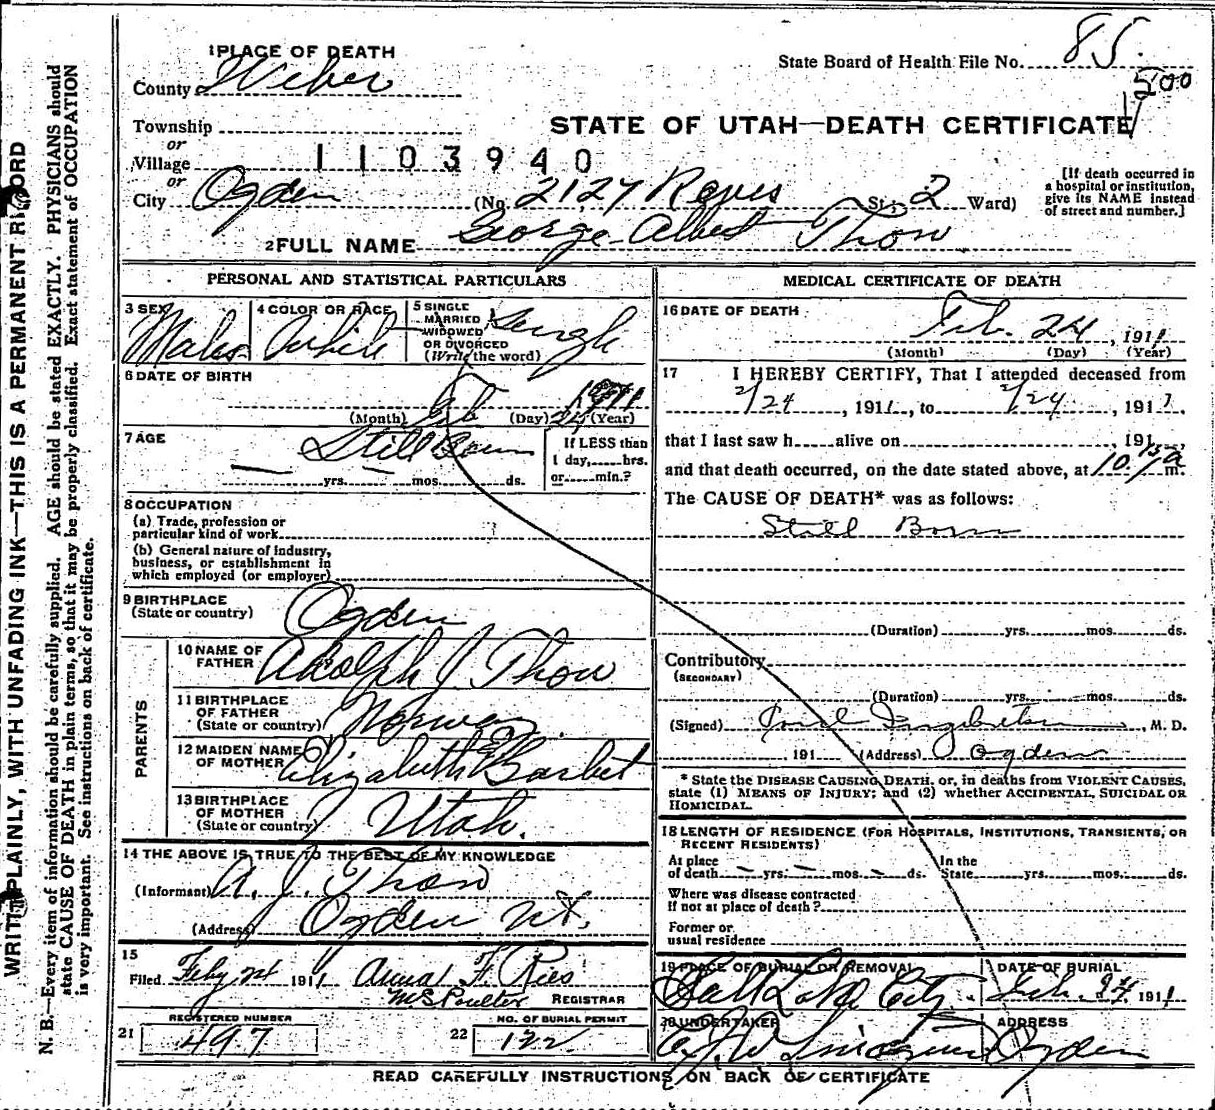 1 PLACE OF DEATH
State Board of Health File No. 85
500
County Weber
Township
or
Village
STATE OF UTAH—DEATH CERTIFICATE
1103940
or
City Ogden (No. 2127 St.; 2 Ward)
[If death occurred in
a hospital or institution,
give its NAME instead
of street and number.]
2 FULL NAME George Albert Thow
PERSONAL AND STATISTICAL PARTICULARS
3 SEX Male
4 COLOR OR RACE White
5 SINGLE
MARRIED
WIDOWED
OR DIVORCED
(Write the word)
Single
6 DATE OF BIRTH
(Month) Feb (Day) 24 (Year) 1911
7 AGE Still Born
yrs. mos. ds.
If LESS than
1 day, hrs.
or min.?
8 OCCUPATION
(a) Trade, profession or
particular kind of work
(b) General nature of industry,
business, or establishment in
which employed (or employer)
9 BIRTHPLACE
(State or country) Ogden
PARENTS
10 NAME OF
FATHER Adolph J. Thow
11 BIRTHPLACE
OF FATHER
(State or country) Norway
12 MAIDEN NAME
OF MOTHER Elizabeth Barbet
13 BIRTHPLACE
OF MOTHER
(State or country) Utah.
14 THE ABOVE IS TRUE TO THE BEST OF MY KNOWLEDGE
(Informant) A. J. Thow
(Address) Ogden Ut.
15
Filed Feby 24 1911 Anna F. Ries
M S Poulter REGISTRAR
21 REGISTERED NUMBER
497
22 NO. OF BURIAL PERMIT
122
MEDICAL CERTIFICATE OF DEATH
16 DATE OF DEATH
Feb. 24, 1911
(Month) (Day) (Year)
17 I HEREBY CERTIFY, That I attended deceased from
2/24, 1911, to 2/24, 1911,
that I last saw h alive on , 191 ,
and that death occurred, on the date stated above, at 10.15 a m.
The CAUSE OF DEATH* was as follows:
Still Born
(Duration) yrs. mos. ds.
Contributory
(SECONDARY)
(Duration) yrs. mos. ds.
(Signed) Ingebretsen, M. D.
191 (Address) Ogden
* State the DISEASE CAUSING DEATH, or, in deaths from VIOLENT CAUSES,
state (1) MEANS OF INJURY; and (2) whether ACCIDENTAL, SUICIDAL OR
HOMICIDAL.
18 LENGTH OF RESIDENCE (FOR HOSPITALS, INSTITUTIONS, TRANSIENTS, OR
RECENT RESIDENTS)
At place
of death yrs. mos. ds.
In the
State yrs. mos. ds.
Where was disease contracted
If not at place of death?
Former or
usual residence
19 PLACE OF BURIAL OR REMOVAL
Salt Lake City
DATE OF BURIAL
Feb. 24 1911
20 UNDERTAKER
ADDRESS
Ogden
READ CAREFULLY INSTRUCTIONS ON BACK OF CERTIFICATE
WRITE PLAINLY, WITH UNFADING INK—THIS IS A PERMANENT RECORD
N. B.—Every item of information should be carefully supplied. AGE should be stated EXACTLY. PHYSICIANS should
state CAUSE OF DEATH in plain terms, so that it may be properly classified. Exact statement of OCCUPATION
is very important. See instructions on back of certificate.